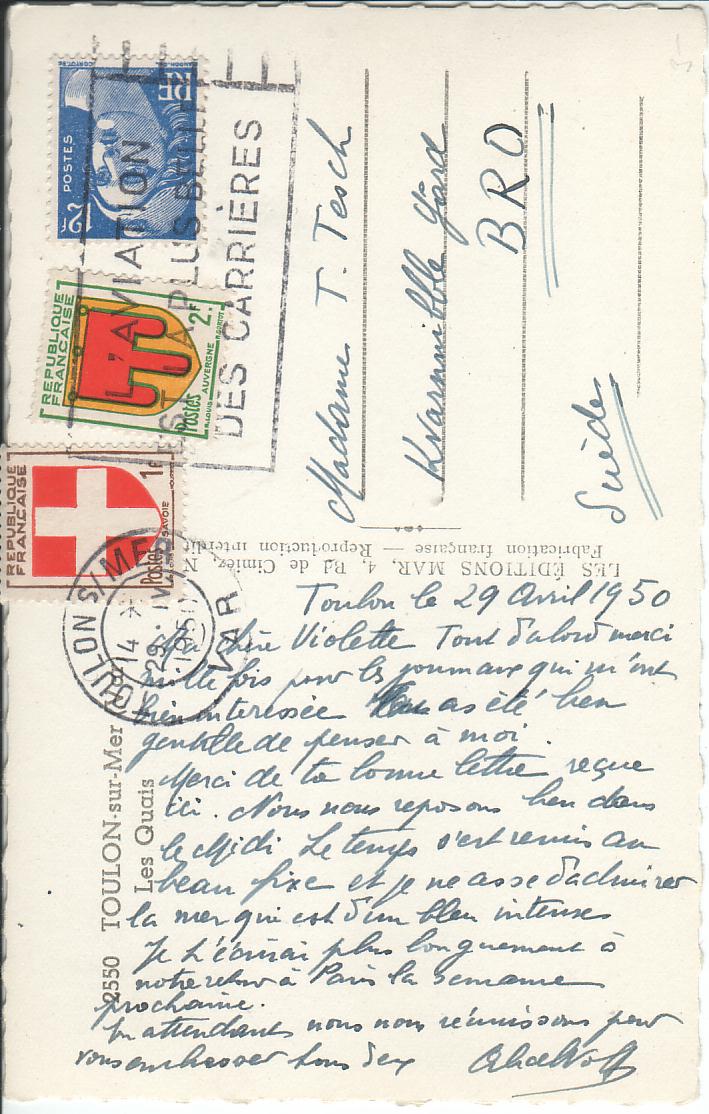 RF
POSTES
12F
REPUBLIQUE
FRANÇAISE
2F
Postes
AUVERGNE
REPUBLIQUE
FRANÇAISE
1F
Postes
SAVOIE
L'AVIATION
EST LA PLUS BELLE
DES CARRIÈRES
TOULON S/MER
14 *
29 · IV
1950
VAR
Madame T. Tesch
gård
BRO
Suède
LES ÉDITIONS MAR, 4, Bd de Cimiez, N
Fabrication française — Reproduction interdite
2550 TOULON-sur-Mer
Les Quais
Toulon le 29 Avril 1950
Ma chère Violette Tout d'abord merci
mille fois pour les journaux qui m'ont
bien interessée Tu as été bien
gentille de penser à moi.
Merci de ta bonne lettre reçue
ici. Nous nous reposons bien dans
le Midi Le temps s'est remis au
beau fixe et je ne d'admirer
la mer qui est d'un bleu intense
Je t'écrirai plus longuement à
notre retour à Paris la semaine
prochaine.
En attendant nous nous réunissons pour
vous embrasser tous deux